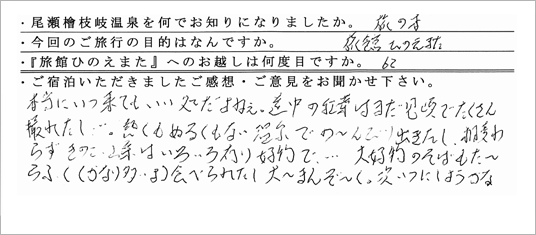 ・尾瀬檜枝岐温泉を何でお知りになりましたか。 旅の本
・今回のご旅行の目的はなんですか。 旅館ひのえまた
・『旅館ひのえまた』へのお越しは何度目ですか。 62
・ご宿泊いただきましたご感想・ご意見をお聞かせ下さい。
本当にいつ来てもいい処だよねぇ。途中の紅葉はまだ見頃でたくさん
撮れたし…。熱くもぬるくもない温泉での〜んびり出きたし、相変わ
らずきのこ いろいろ有り好物で… 大好物のそばもた〜
らふく(かなり多いよ)食べられたし大〜まんぞ〜く。次いつにしようかな